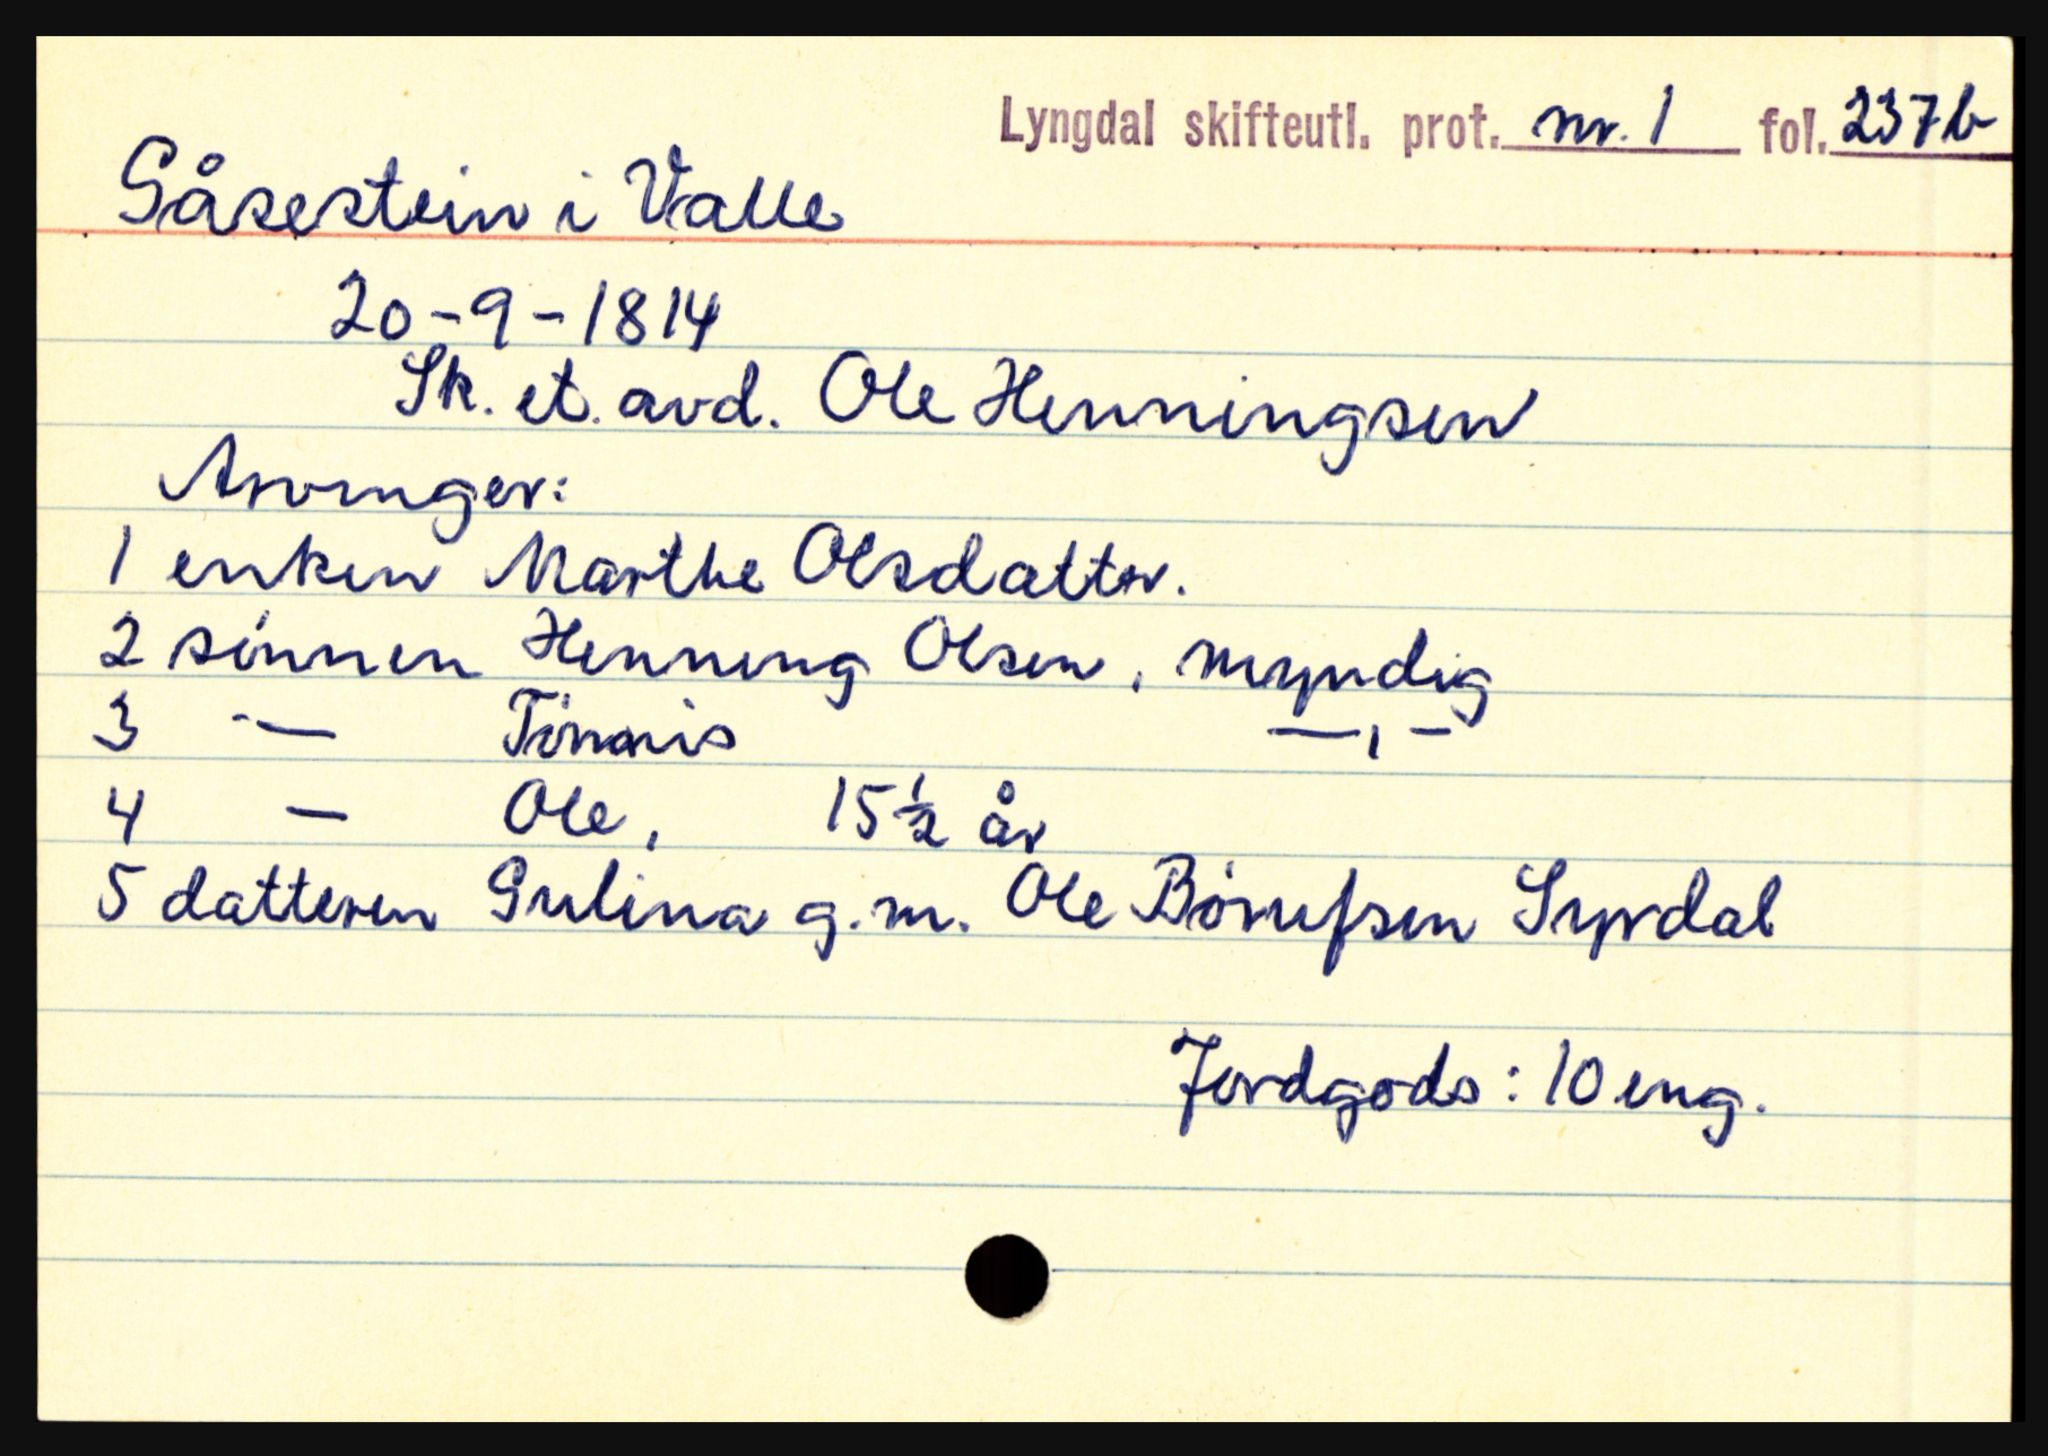 Lyngdal skifteutl. prot. nr. 1 fol. 237b
Gåsestein i Valle
20-9-1814
Sk. et. avd. Ole Henningsen
Arvinger:
1 enken Marthe Olsdatter.
2 sønnen Henning Olsen, myndig
3 — Tønnis —〃—
4 — Ole, 15½ år
5 datteren Gulina g.m. Ole Børufsen Syrdal
Jordgods: 10 eng.